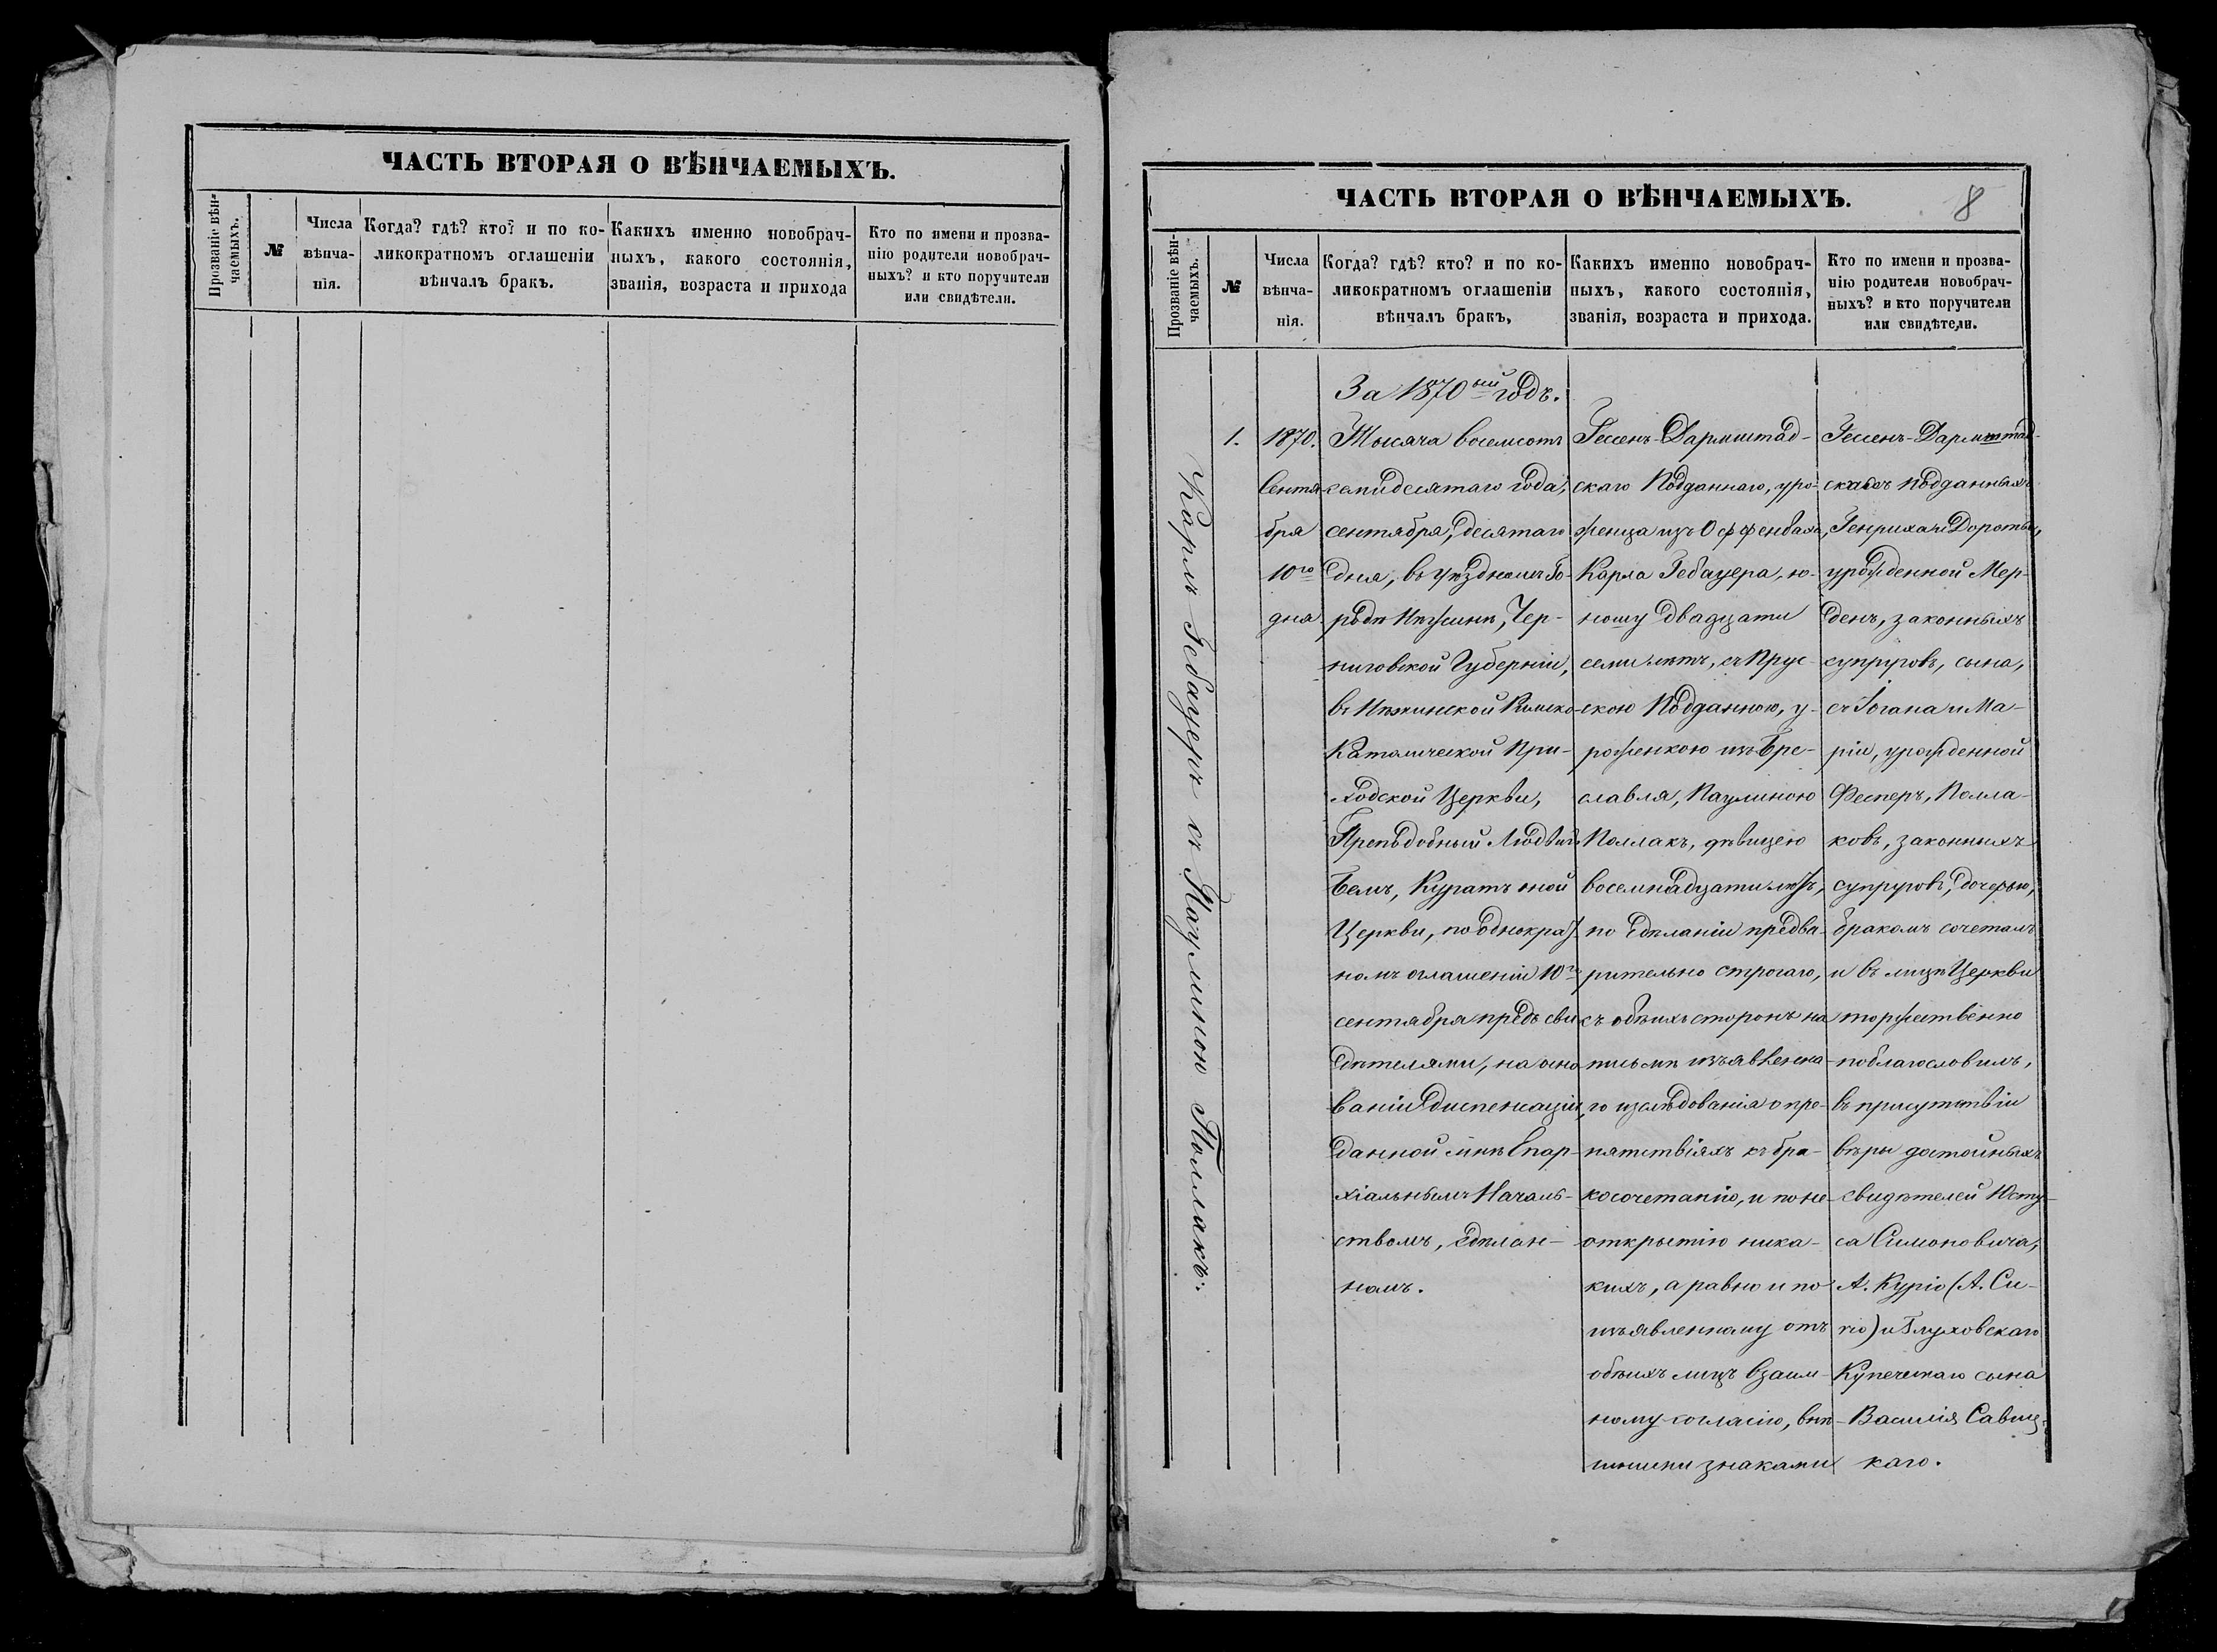 ЧАСТЬ ВТОРАЯ О ВѢНЧАЕМЫХЪ.
Прозваніе вѣн-
чаемыхъ.
№
Числа
вѣнча-
нія.
Когда? гдѣ? кто? и по ко-
ликократномъ оглашеніи
вѣнчалъ бракъ.
Какихъ именно новобрач-
ныхъ, какого состоянія,
званія, возраста и прихода
Кто по имени и прозва-
нію родители новобрач-
ныхъ? и кто поручители
или свидѣтели.
ЧАСТЬ ВТОРАЯ О ВѢНЧАЕМЫХЪ.
8
Прозваніе вѣн-
чаемыхъ.
№
Числа
вѣнча-
нія.
Когда? гдѣ? кто? и по ко-
ликократномъ оглашеніи
вѣнчалъ бракъ,
Какихъ именно новобрач-
ныхъ, какого состоянія,
званія, возраста и прихода.
Кто по имени и прозва-
нію родители новобрач-
ныхъ? и кто поручители
или свидѣтели.
Карлъ Гебауеръ съ Паулиною Поллакъ.
1.
1870.
Сентя-
бря
10го
дня
За 1870ый годъ.
Тысяча восемсотъ
семидесятаго года,
сентября, десятаго
дня, въ уѣздномъ Го-
родѣ Нѣжинѣ, Чер-
ниговской Губерніи,
въ Нѣжинской Римско-
Католической При-
ходской Церкви,
Преподобный Людвигъ
Бемъ, Куратъ оной
Церкви, по однократ-
номъ оглашеніи 10го
сентября предъ сви-
дѣтелями, на осно-
ваніи диспенсаціи,
данной мнѣ Епар-
хіальнымъ Началь-
ствомъ, сдѣлан-
номъ.
Гессенъ-Дармштад-
скаго Подданнаго, уро-
женца изъ Оффенбаха,
Карла Гебауера, ю-
ношу двадцати
семи лѣтъ, съ Прус-
скою Подданною, у-
роженкою изъ Бре-
славля, Паулиною
Поллакъ, дѣвицею
восемнадцати лѣтъ,
по сдѣланіи предва-
рительно строгаго,
съ обѣихъ сторонъ на
письмѣ изъявленна-
го изслѣдованія о пре-
пятствіяхъ къ бра-
косочетанію, и по не-
открытію ника-
кихъ, а равно и по
изъявленному отъ
обѣихъ лицъ взаим-
ному согласію, внѣ-
шними знаками
Гессенъ-Дармштад-
скихъ подданныхъ
Генриха и Доротеи,
урожденной Мер-
денъ, законныхъ
супруговъ, сына,
съ Іогана и Ма-
ріи, урожденной
Фесперъ, Полла-
ковъ, законныхъ
супруговъ, дочерью,
бракомъ сочеталъ
и въ лицѣ Церкви
торжественно
поблагословилъ,
въ присутствіи
вѣры достойныхъ
свидѣтелей Юсту-
са Симоновича,
А. Куріо (А. Си-
гіо) и Глуховскаго
Купеческаго сына
Василія Савиц-
каго.